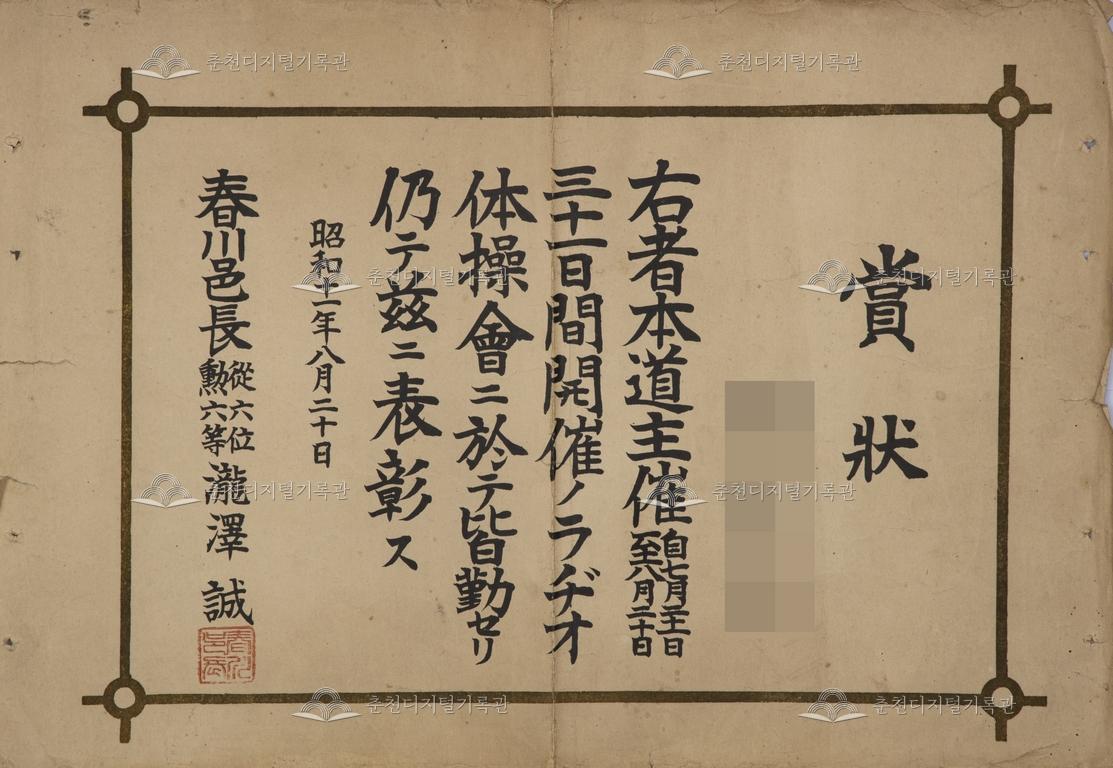 賞狀
右者本道主催自七月二十一日至八月二十日
三十一日間開催ノラヂオ
体操會ニ於テ皆勤セリ
仍テ茲ニ表彰ス
昭和十一年八月二十日
春川邑長從六位勳六等瀧澤誠
春川邑長
춘천디지털기록관
춘천디지털기록관
춘천디지털기록관
춘천디지털기록관
춘천디지털기록관
춘천디지털기록관
춘천디지털기록관
춘천디지털기록관